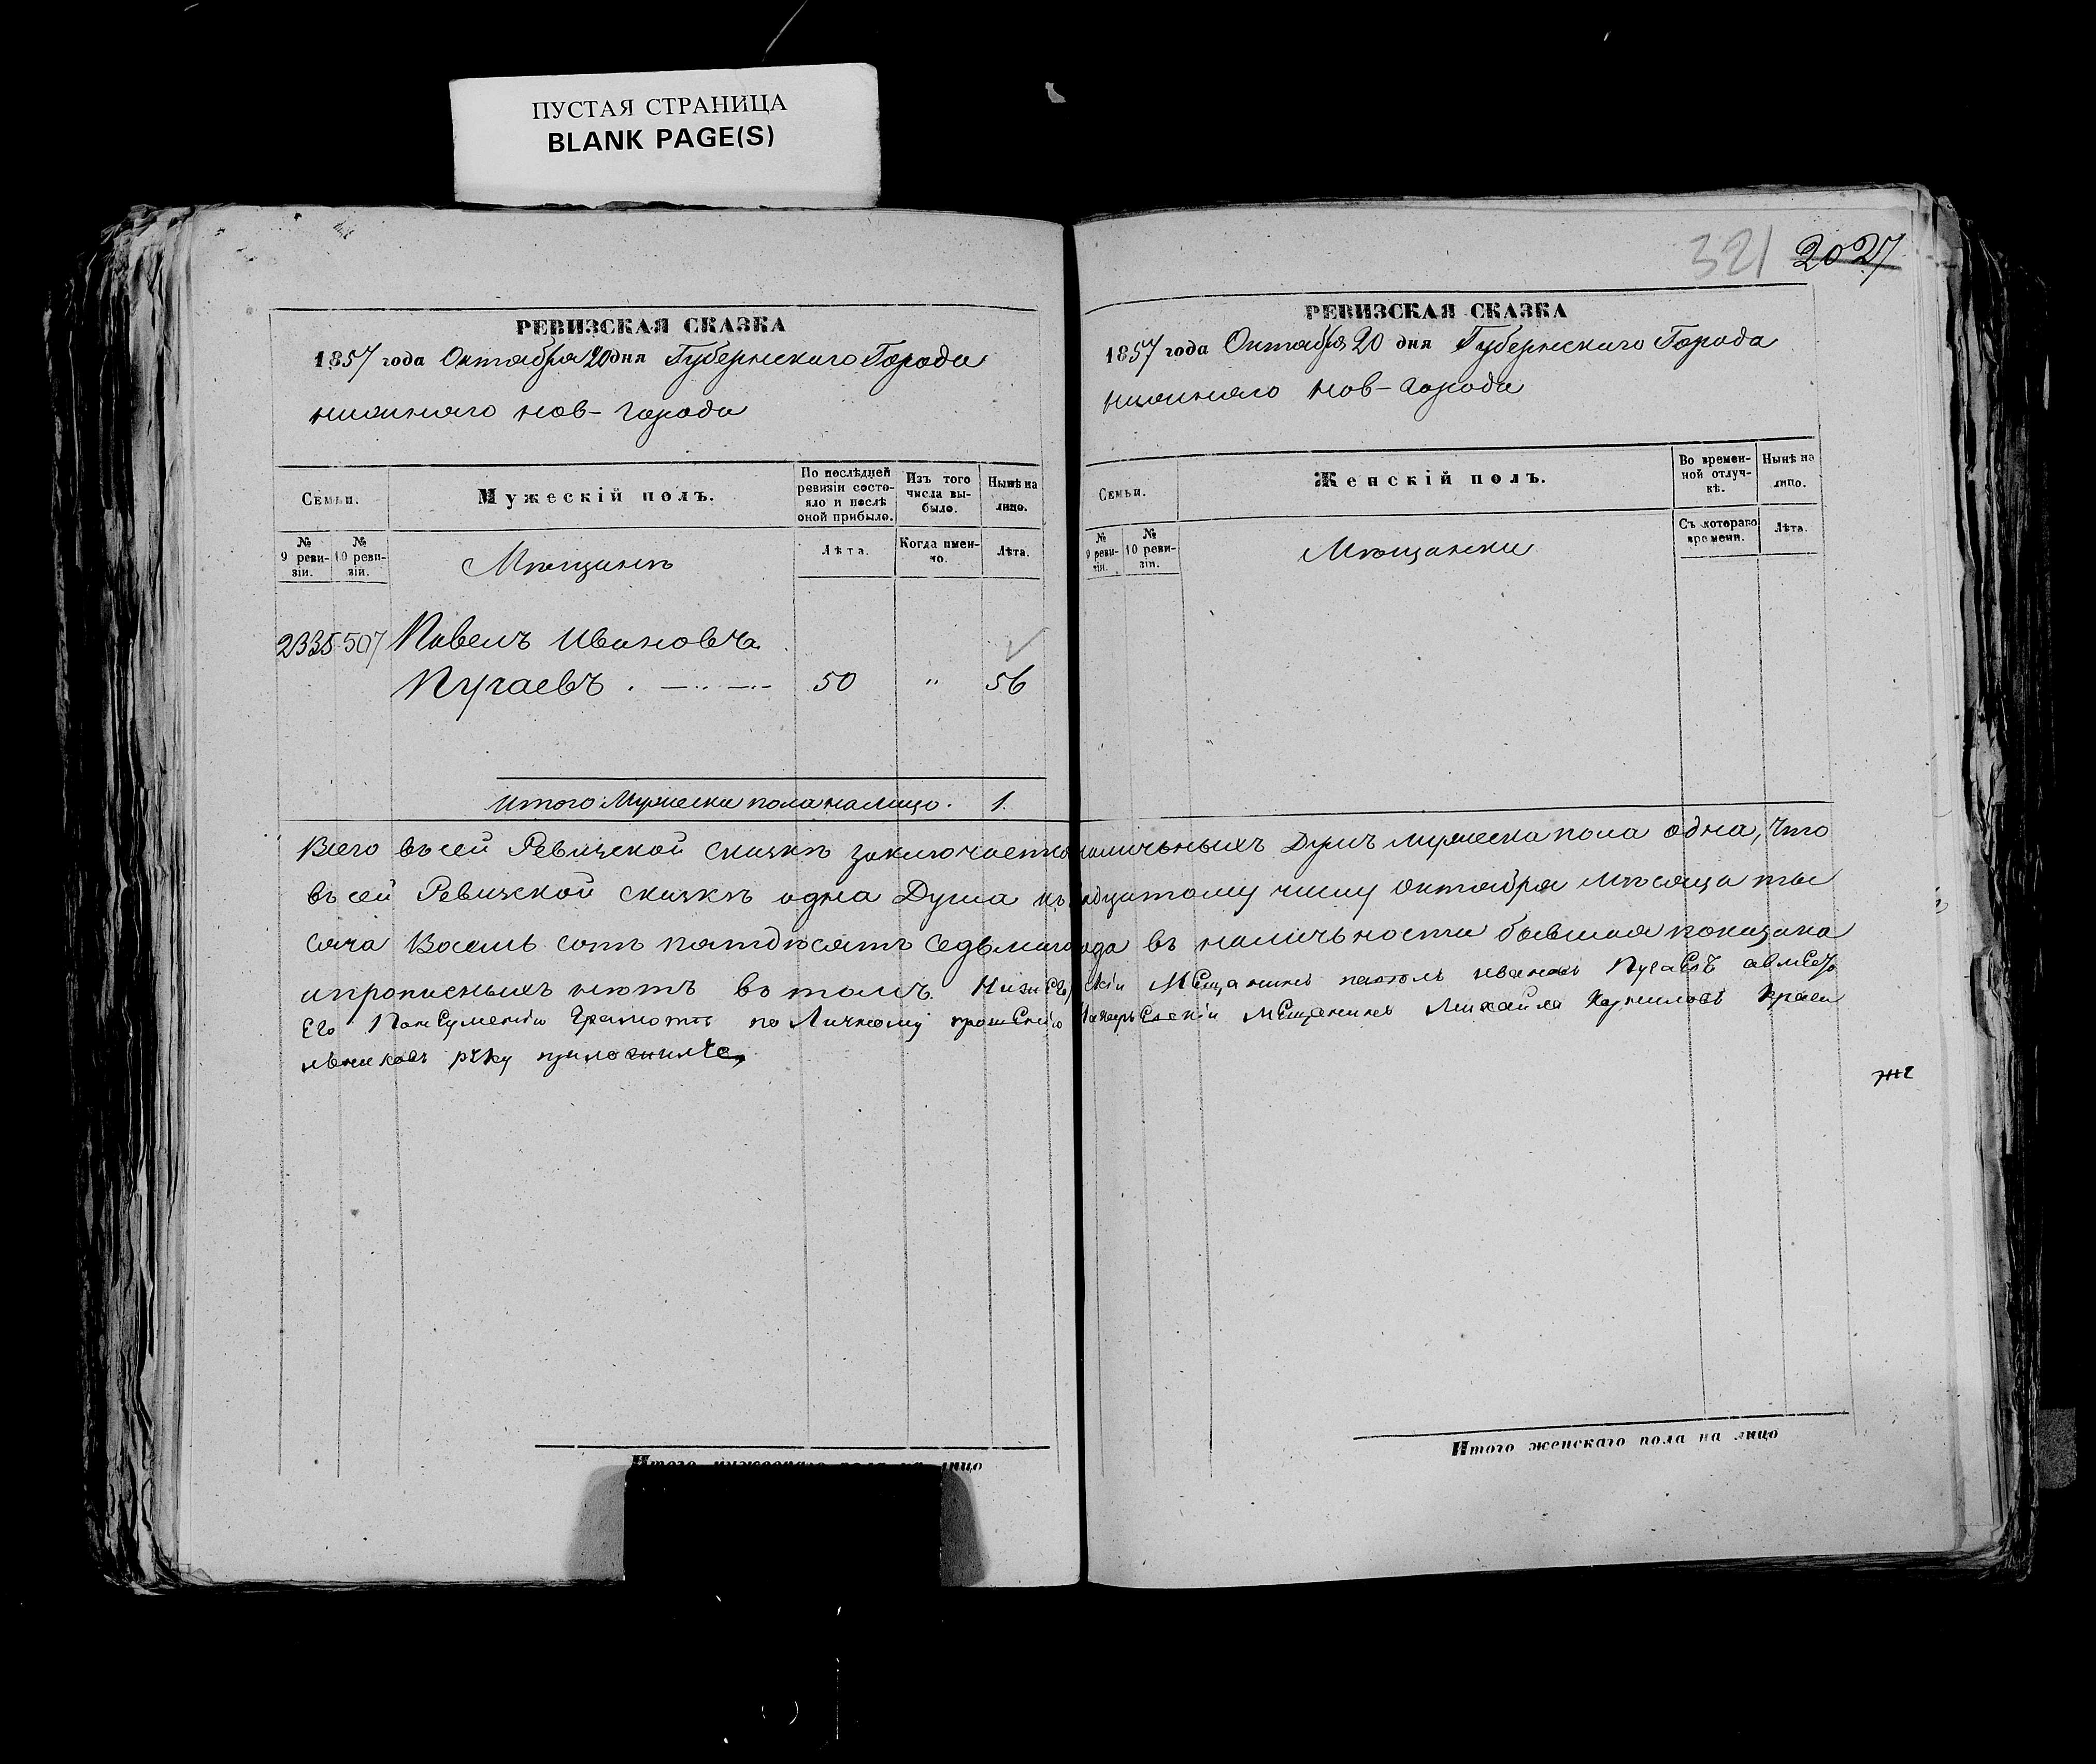 ПУСТАЯ СТРАНИЦА
BLANK PAGE(S)
РЕВИЗСКАЯ СКАЗКА
1857 года Октября 20 дня Губернскаго Города
нижняго нов-города
Семьи.
Мужескій полъ.
По послѣдней ревизіи состояло и послѣ оной прибыло.
Изъ того числа выбыло.
Нынѣ на лицо.
№ 9 ревизіи.
№ 10 ревизіи.
Мѣщанъ
Лѣта.
Когда именно.
Лѣта.
2335 507 Павелъ Ивановъ
Пугаевъ . — .. — .. 50 " 56
Итого Мужеска пола налицо. 1.
321 2027
РЕВИЗСКАЯ СКАЗКА
1857 года Октября 20 дня Губернскаго Города
нижняго нов-города
Семьи.
Женскій полъ.
Во временной отлучкѣ.
Нынѣ на лицо.
№ 9 ревизіи.
№ 10 ревизіи.
Мѣщанки
Съ котораго времени.
Лѣта.
Всего въ сей Ревизской сказкѣ заключается наличьныхъ Душъ мужеска пола одна, Что
въ сей Ревизской сказкѣ одна Душа къ числу октября мѣсяца ты
сяча Восемь сотъ пятдѣсятъ седьмаго года въ наличьности бывшая показана
ипрописныхъ нѣтъ въ томъ. Мещанинъ ивановъ Пугаевъ
Его Грамотѣ по Личному прошенію Мещанинъ Михайла
руку приложилъ
Итого мужескаго пола на лицо
Итого женскаго пола на лицо